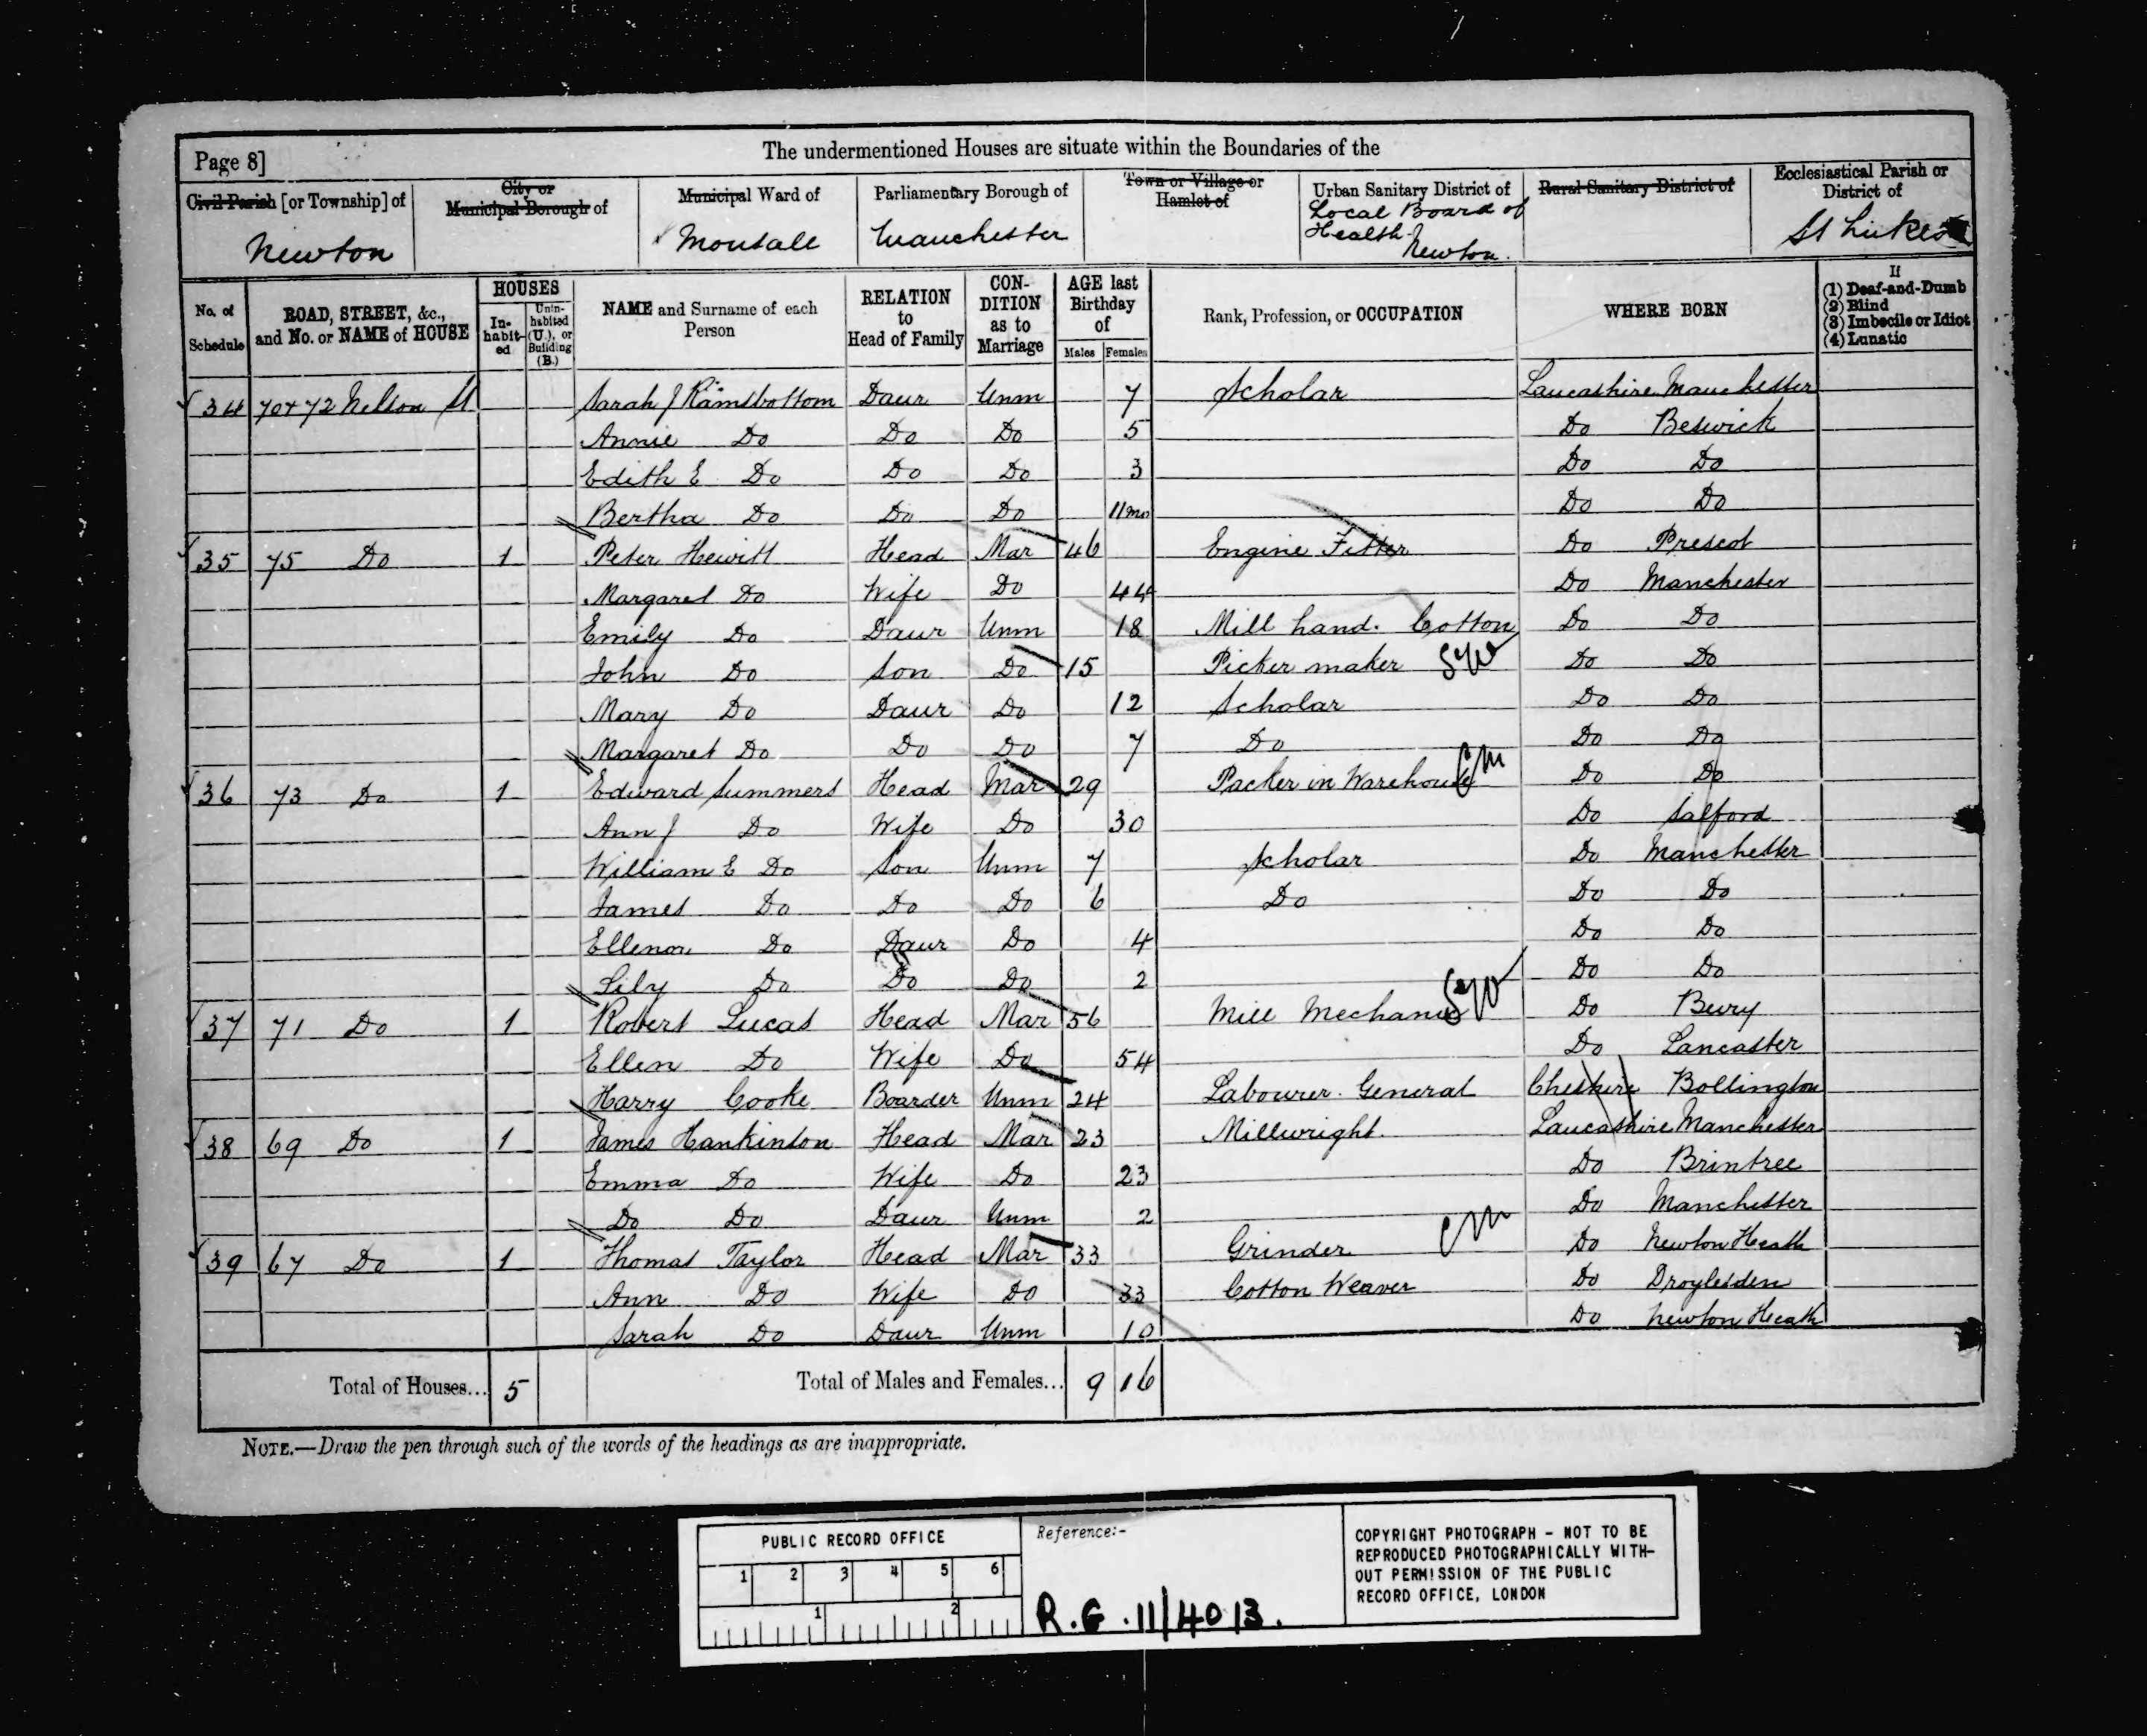 Page 8]
The undermentioned Houses are situate within the Boundaries of the
Civil Parish [or Township] of
City or Municipal Borough of
Municipal Ward of
Parliamentary Borough of
Town or Village or Hamlet of
Urban Sanitary District of
Rural Sanitary District of
Ecclesiastical Parish or District of
Newton
Monsall
Manchester
Local Board of Health Newton.
St Lukes
No. of Schedule
ROAD, STREET, &c., and No. or NAME of HOUSE
HOUSES
In-habit-ed
Unin-habited (U.), or Building (B.)
NAME and Surname of each Person
RELATION to Head of Family
CON-DITION as to Marriage
AGE last Birthday of
Males
Females
Rank, Profession, or OCCUPATION
WHERE BORN
If
(1) Deaf-and-Dumb
(2) Blind
(3) Imbecile or Idiot
(4) Lunatic
34 70+72 Nelson St Sarah J Ramsbottom Daur Unm 7 Scholar Lancashire Manchester
Annie Do Do Do 5 Do Beswick
Edith E Do Do Do 3 Do Do
Bertha Do Do Do 11mo Do Do
35 75 Do 1 Peter Hewitt Head Mar 46 Engine Fitter Do Prescot
Margaret Do Wife Do 44 Do Manchester
Emily Do Daur Unm 18 Mill hand. Cotton Do Do
John Do Son Do 15 Picker maker Do Do
Mary Do Daur Do 12 Scholar Do Do
Margaret Do Do Do 7 Do Do Do
36 73 Do 1 Edward Summers Head Mar 29 Packer in Warehouse CM Do Do
Ann J Do Wife Do 30 Do Salford
William E Do Son Unm 7 Scholar Do Manchester
James Do Do Do 6 Do Do Do
Ellenor Do Daur Do 4 Do Do
Lily Do Do Do 2 Do Do
37 71 Do 1 Robert Lucas Head Mar 56 Mill Mechanic Do Bury
Ellen Do Wife Do 54 Do Lancaster
Harry Cooke Boarder Unm 24 Labourer. General Cheshire Bollington
38 69 Do 1 James Hankinson Head Mar 23 Millwright. Lancashire Manchester
Emma Do Wife Do 23 Do Brintree
Do Do Daur Unm 2 Do Manchester
39 67 Do 1 Thomas Taylor Head Mar 33 Grinder CM Do Newton Heath
Ann Do Wife Do 33 Cotton Weaver Do Droylesden
Sarah Do Daur Unm 10 Do Newton Heath
Total of Houses... 5 Total of Males and Females... 9 16
NOTE.—Draw the pen through such of the words of the headings as are inappropriate.
PUBLIC RECORD OFFICE
1 2 3 4 5 6
1 2
Reference:-
R.G. 11/4013.
COPYRIGHT PHOTOGRAPH - NOT TO BE
REPRODUCED PHOTOGRAPHICALLY WITH-
OUT PERMISSION OF THE PUBLIC
RECORD OFFICE, LONDON